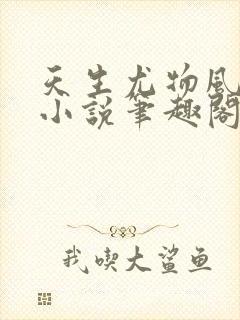 天生尤物風
小說筆趣閣
我喫大鯊鱼